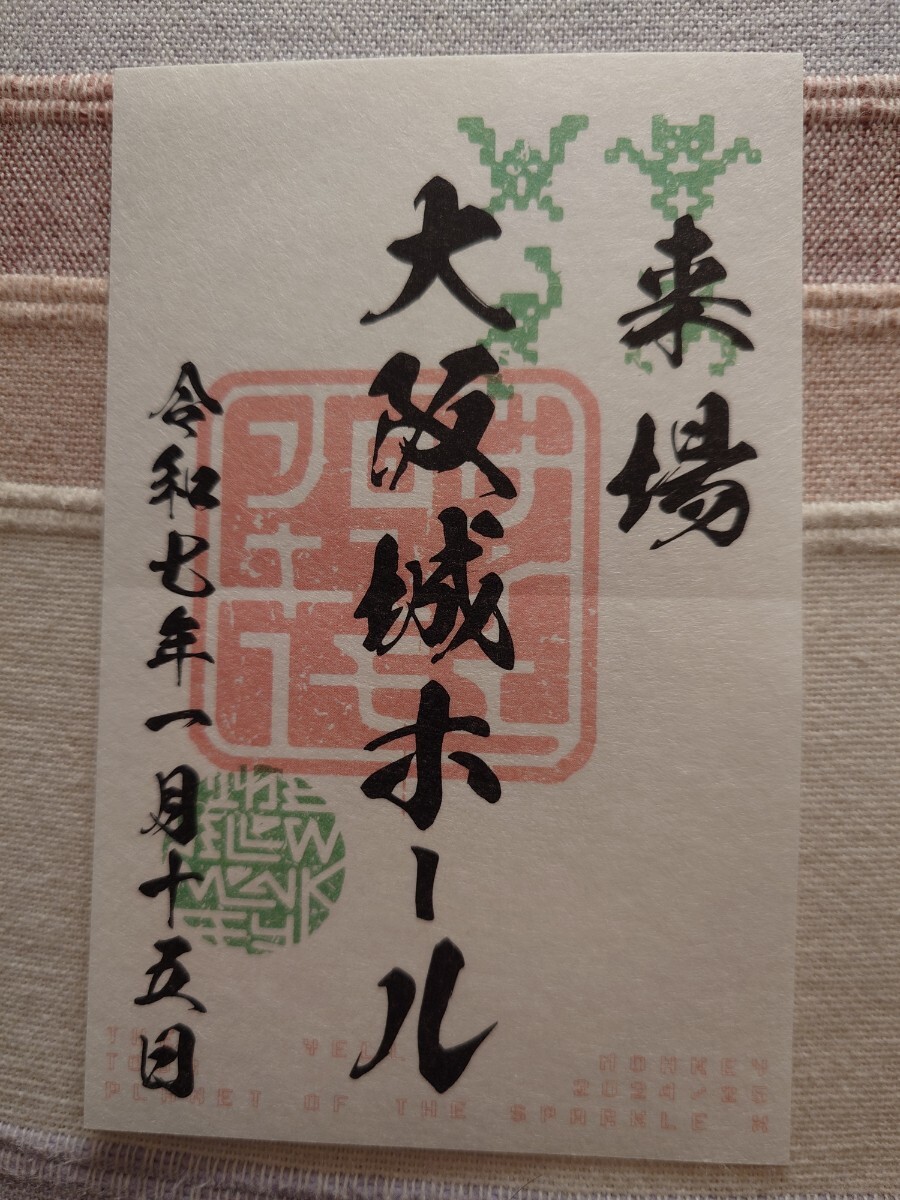 来場
大阪城ホール
令和七年一月十五日
THE YELLOW MONKEY
TOUR 2024/25
PLANET OF THE SPARKLE X